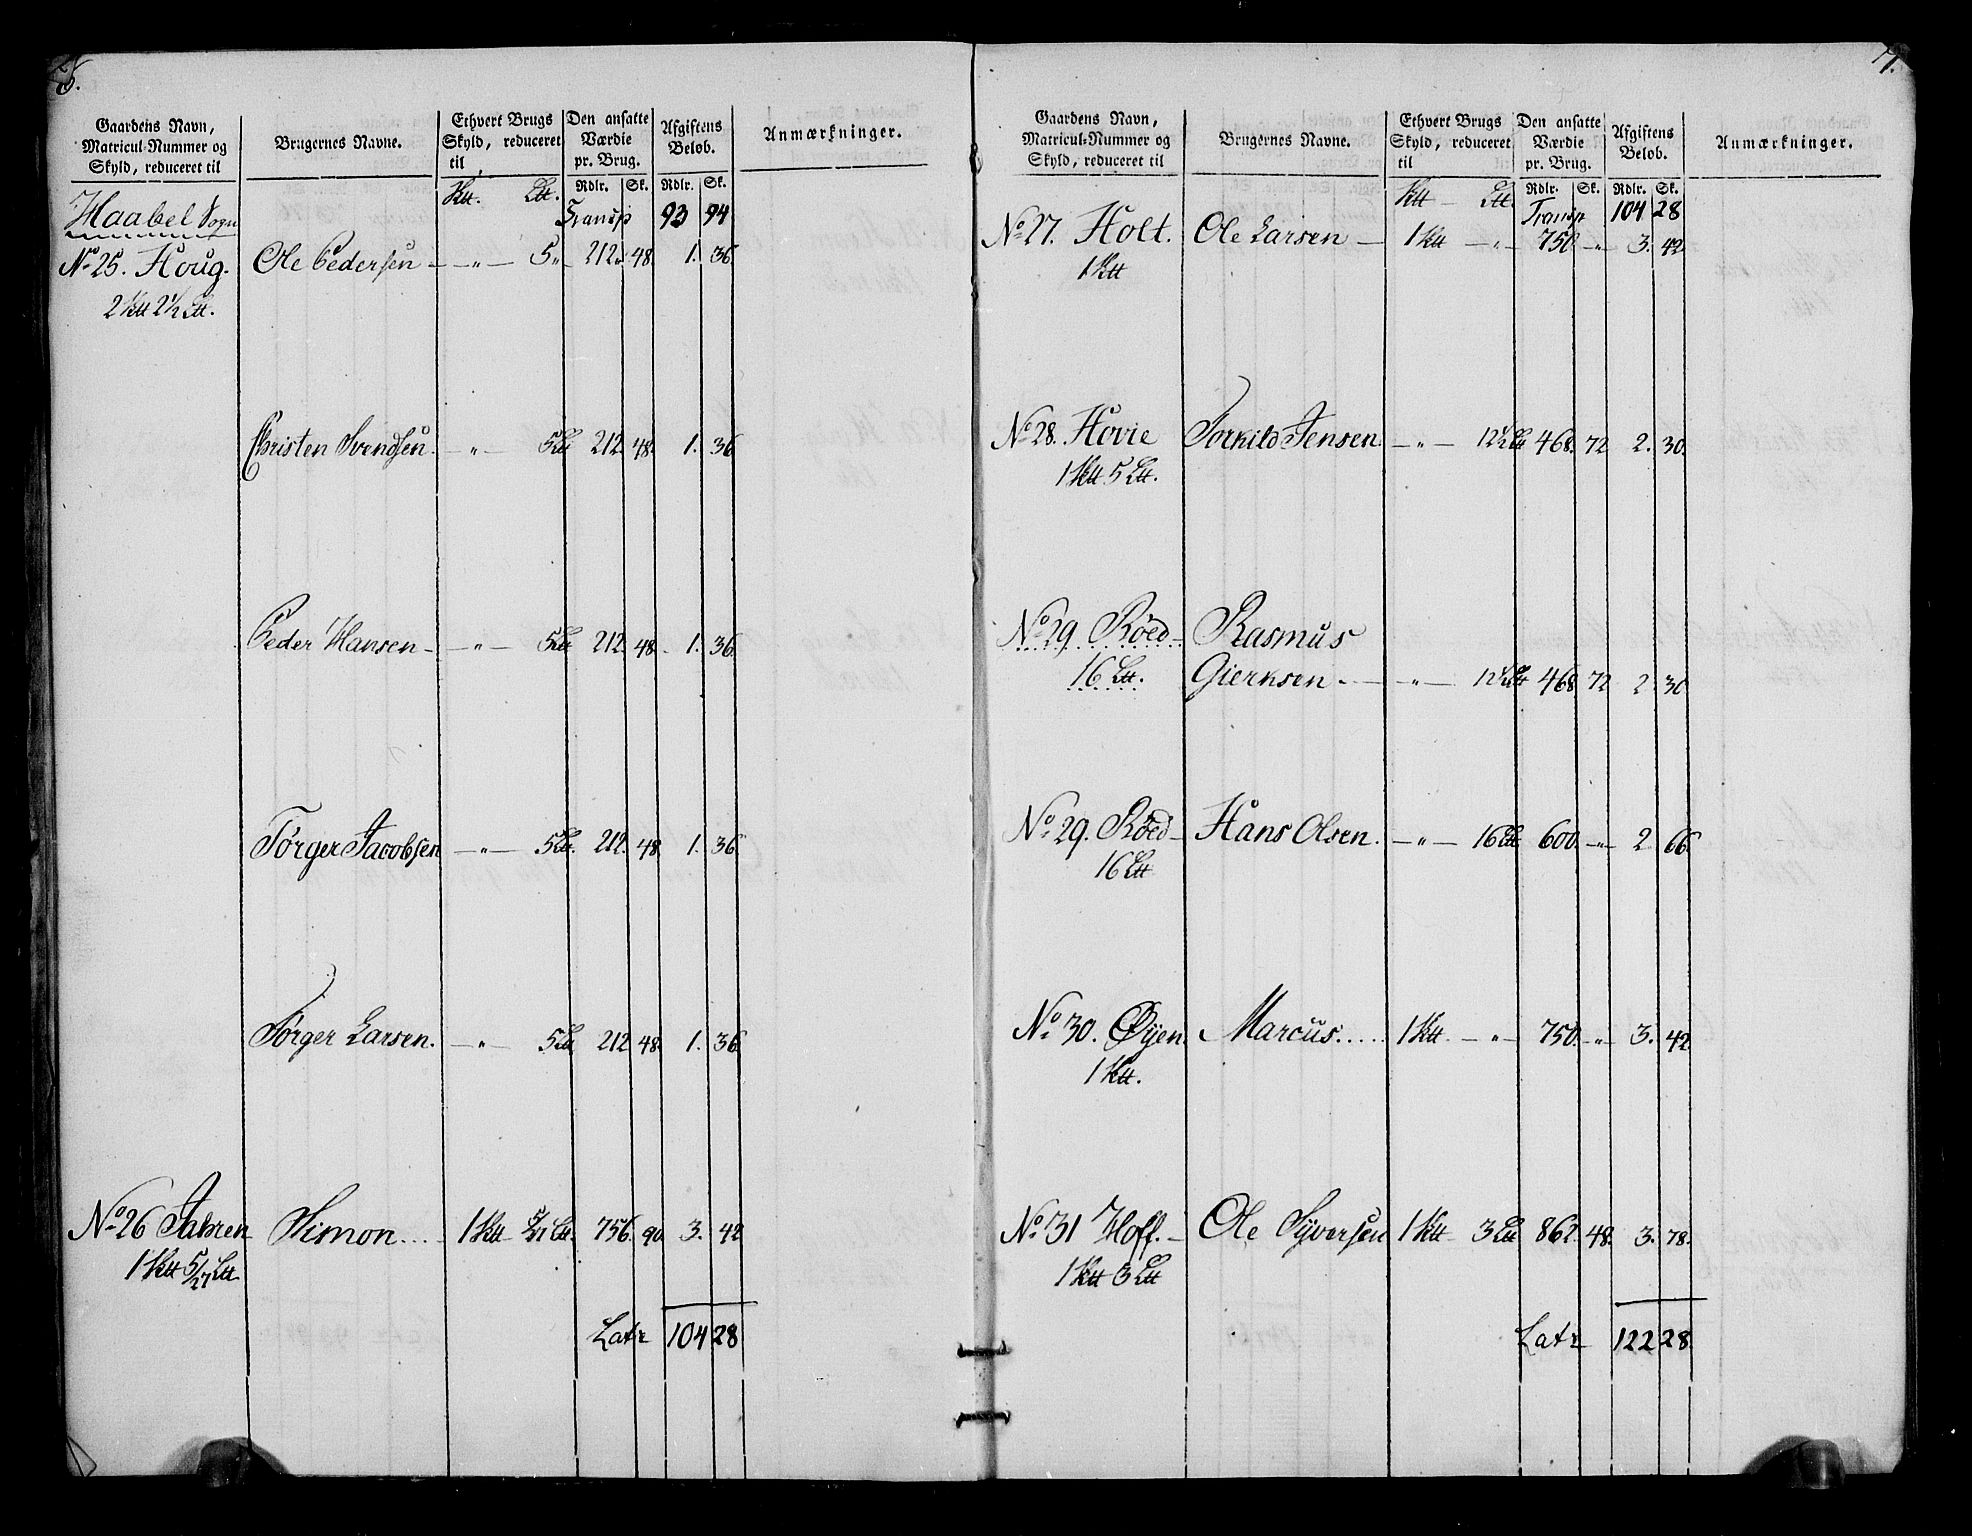 8.
Gaardens Navn, Matricul-Nummer og Skyld, reduceret til | Brugernes Navne. | Ethvert Brugs Skyld, reduceret til | Den ansatte Værdie pr. Brug. | Afgiftens Beløb. | Anmærkninger.
Ktt. Ltt. Rdlr. Sk. Rdlr. Sk.
Haabel Sogn Transp 93 94
No 25. Houg. Ole Pedersen — „ — 5 „ 212 „ 48. 1. 36.
2 Ktt 2 1/2 Ltt.
Christen Svendsen. — „ — 5 Ltt 212. 48. 1. 36
Peder Hansen — „ — 5 Ltt 212. 48. 1. 36.
Törger Jacobsen — „ — 5 Ltt. 212. 48 1. 36.
Törger Larsen. — „ — 5 Ltt 212. 48. 1. 36
No 26 Jahren Simon.... 1 Ktt 5/21 Ltt. 756. 90. 3. 42
1 Ktt 5/21 Ltt.
Latr 104 28
Gaardens Navn, Matricul-Nummer og Skyld, reduceret til | Brugernes Navne. | Ethvert Brugs Skyld, reduceret til | Den ansatte Værdie pr. Brug. | Afgiftens Beløb. | Anmærkninger.
Ktt — Ltt. Rdlr. Sk. Rdlr. Sk.
Transp 104 28
No 27. Holt. Ole Larsen — 1 Ktt — „ — 750 — „ 3. 42
1 Ktt
No 28. Hovie Torkild Jensen — „ — 12 1/2 Ltt 468. 72 2. 30.
1 Ktt 5 Ltt.
No 29. Röed — Rasmus
16 Ltt. Gierksen. — „ — 12 1/2 Ltt 468 72 2. 30
No 29. Röed — Hans Olsen. — „ — 16 Ltt 600. „ 2 66.
16 Ltt
No 30. Øÿen Marcus..... 1 Ktt. — „ — 750. — „ 3. 42
1 Ktt.
No 31 Hoff. — Ole Syversen 1 Ktt 3 Ltt 862. 48. 3. 78.
1 Ktt 3 Ltt
Latr 122 28.